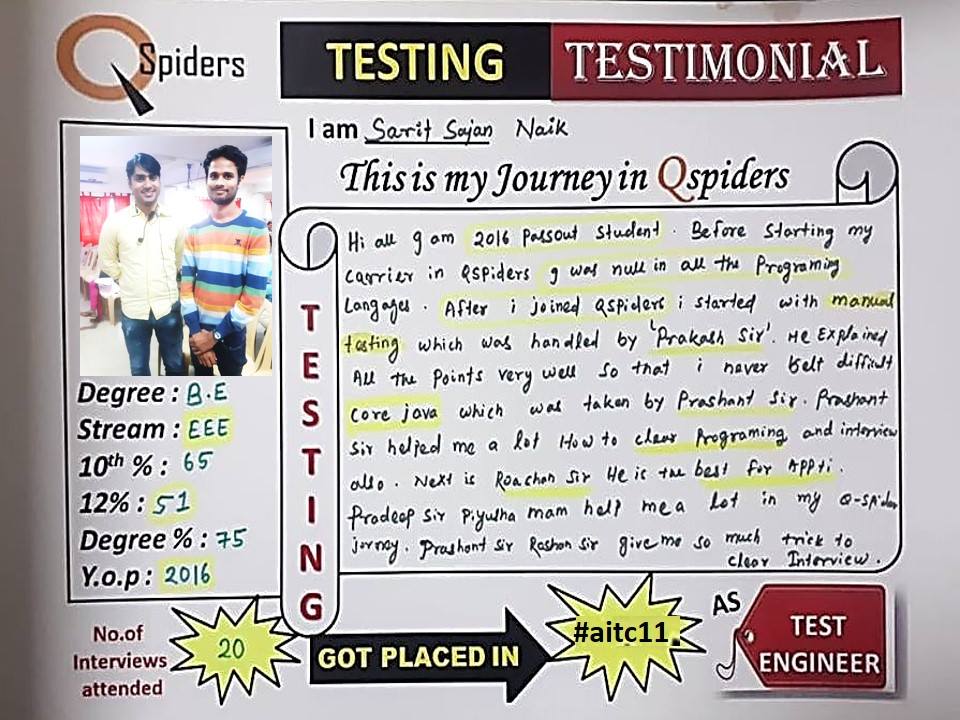 QSpiders
TESTING TESTIMONIAL
I am Sarit Sajan Naik
This is my Journey in Qspiders
TESTING
Hi all g am 2016 passout student. Before starting my
carrier in QSpiders g was null in all the Programing
Langages. After i joined QSpiders i started with manual
testing which was handled by 'Prakash Sir'. He Explained
All the points very well so that i never belt difficult
core java which was taken by Prashant Sir. Prashant
Sir helped me a lot How to clear Programing and interview
also. Next is Roashan Sir He is the best for Appti.
Pradeep Sir Piyusha mam help me a lot in my Q-spider
jorney. Prashant Sir Roshan Sir give me so much trick to
clear Interview.
Degree : B.E
Stream : EEE
10th % : 65
12% : 51
Degree % : 75
Y.o.p : 2016
No.of
Interviews
attended
20
GOT PLACED IN
#aitc11
AS
TEST
ENGINEER